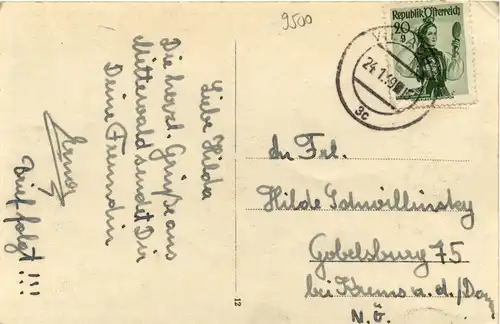 9500
Liebe Hilda
Die herzl. Grüße aus
Mitterwald sendet Dir
Deine Freundin
Erna
Brief folgt !!!
12
Republik Österreich
20
g
VILLA
24.1.49
3c
An Frl.
Hilde Schwillinsky
Gobelsburg 75
bei Krems a.d./Don
N.Ö.